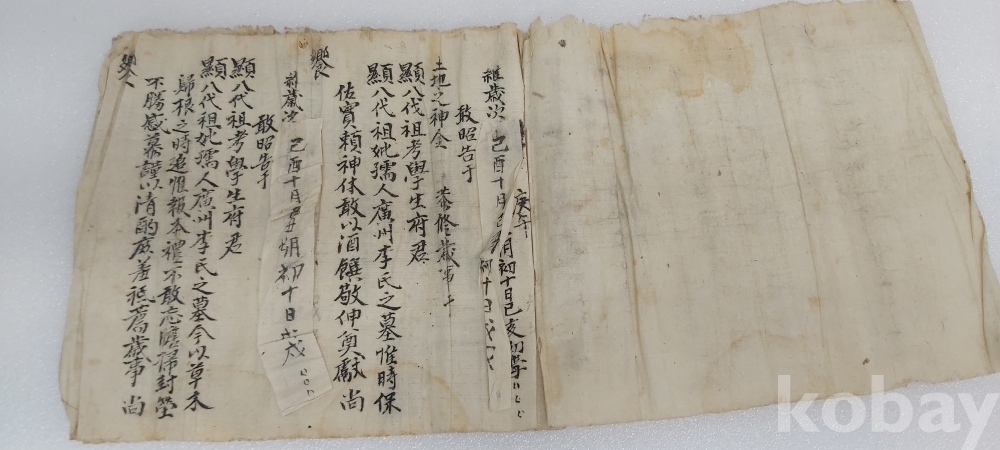 維歲次 己酉十月 庚午 月初十日己亥
敢昭告于
土地之神今 恭修歲事于
顯八代祖考學生府君
顯八代祖妣孺人廣州李氏之墓惟時保
佑實賴神休敢以酒饌敬伸奠獻尚
饗
維歲次 己酉十月 朔初十日戊
敢昭告于
顯八代祖考學生府君
顯八代祖妣孺人廣州李氏之墓今以草木
歸根之時追惟報本禮不敢忘瞻掃封塋
不勝感慕謹以清酌庶羞祗薦歲事尚
饗
kobay